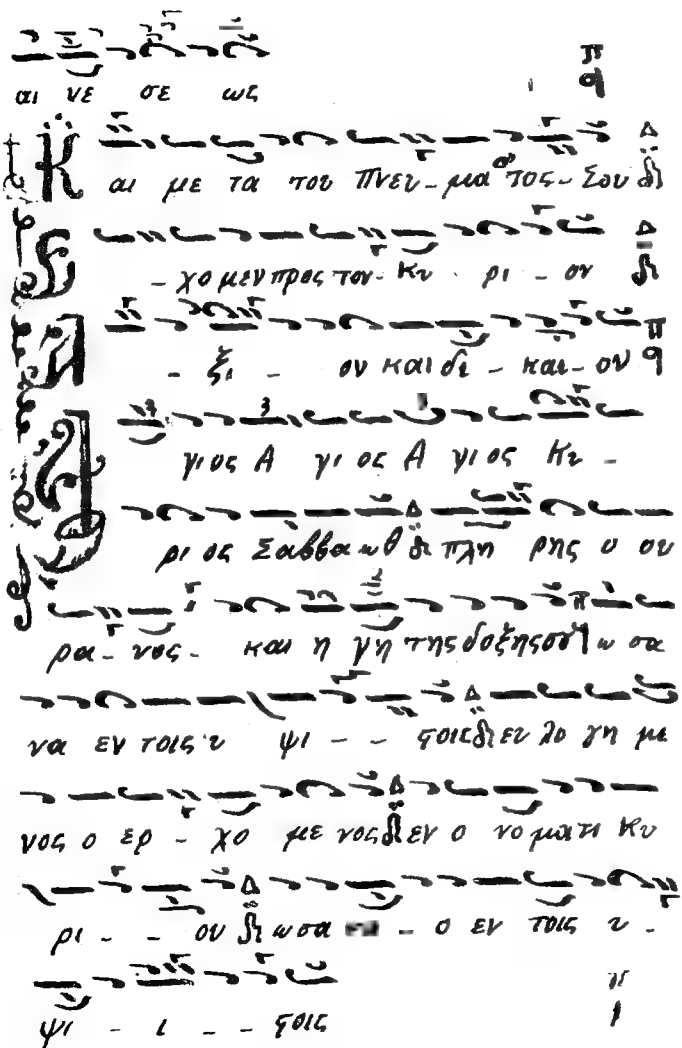 αι νε σε ως
Και με τα του Πνευ - μα τος - Σου
Ε - χο μεν προς τον - Κυ ρι - ον
Α - ξι - ον και δι - και - ον
Α γι ος Α γι ος Α γι ος Κυ -
ρι ος Σαββα ωθ πλη ρης ο ου
ρα - νος - και η γη της δοξης σου ω σα
να εν τοις υ ψι - - ϛοις ευ λο γη με
νος ο ερ - χο με νος εν ο νο ματι Κυ
ρι - - ου ω σα - ο εν τοις υ -
ψι - ι - - ϛοις